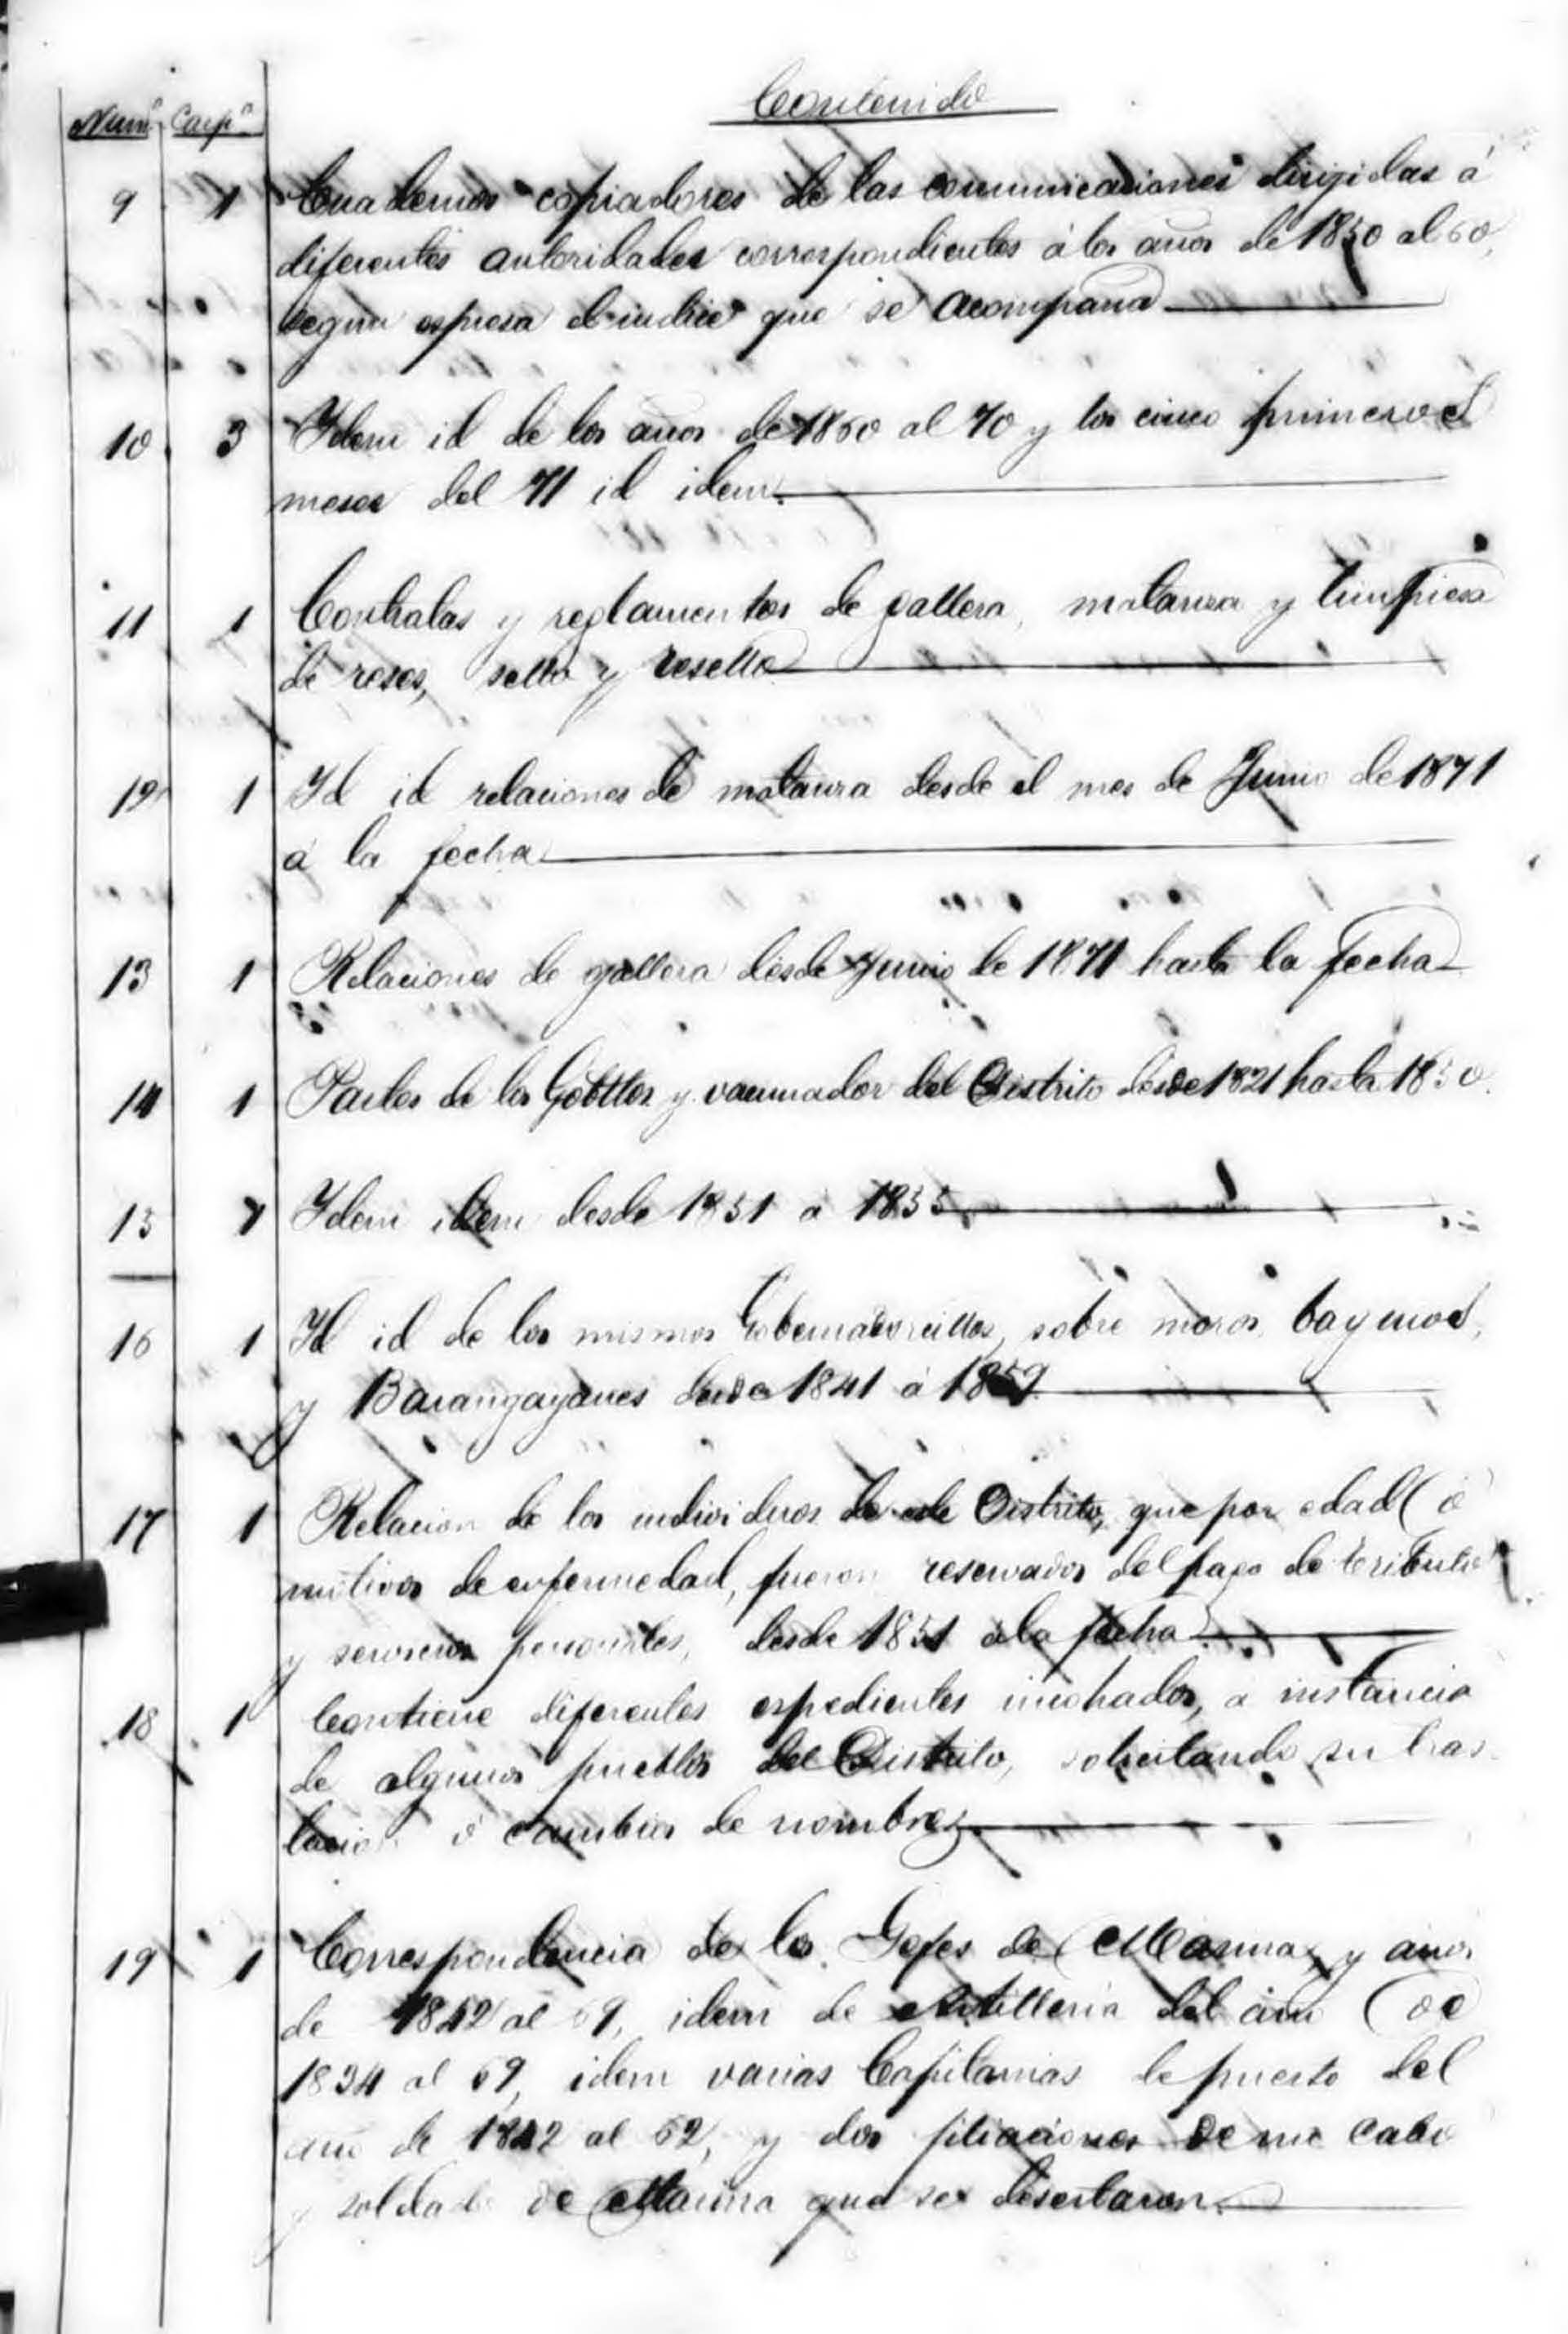 Contenido
Numº Carpª
9 1 Cuadernos copiadores de las comunicaciones dirigidas á
diferentes autoridades correspondientes á los años de 1850 al 60,
segun espresa el indice que se acompaña
10 3 Idem id de los años de 1860 al 70 y los cinco primeros
meses del 71 id idem.
11 1 Contratas y reglamentos de gallera, matanza y limpieza
de reses, sello y resello
12 1 Id id relaciones de matanza desde el mes de Junio de 1871
á la fecha
13 1 Relaciones de gallera desde Junio de 1871 hasta la fecha
14 1 Partes de los Gobllos y vacunador del Distrito desde 1821 hasta 1850.
15 1 Idem idem desde 1851 a 1855
16 1 Id id de los mismos Gobernadorcillos, sobre moros
y Barangayanes desde 1841 á 1859
17 1 Relacion de los individuos de este Distrito, que por edad ó
motivos de enfermedad, fueron reservados del pago de tributo
y servicios personales, desde 1851 á la fecha
18 1 Contiene diferentes espedientes incohados, a instancia
de algunos pueblos del Distrito, solicitando su tras
lacion ó cambios de nombres
19 1 Correspondencia de los Gefes de Marina, y años
de 1852 al 69, idem de Artilleria del año de
1834 al 69, idem varias Capitanias de puerto del
año de 1842 al 62, y dos filiaciones de un cabo
y soldado de Marina que se desertaron.